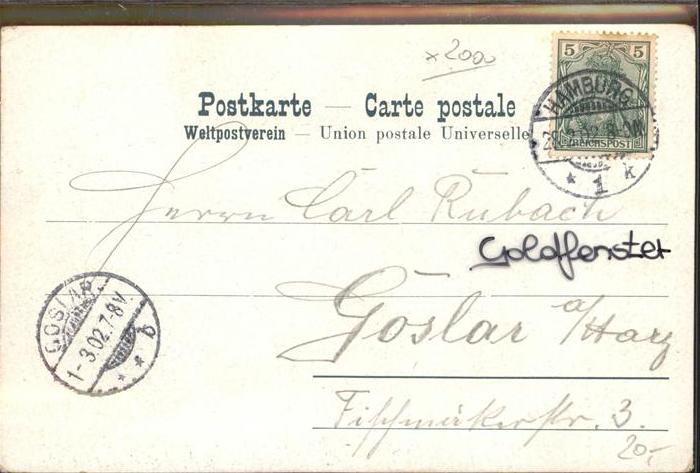 x 2000
5 5
REICHSPOST
HAMBURG
2.02. 8-
* 1 k
Postkarte — Carte postale
Weltpostverein — Union postale Universelle
Herrn Carl Rubach
Goldfenster
Goslar a/Harz
GOSLAR
1-3.02.7-8V.
* * b
3.
20,-